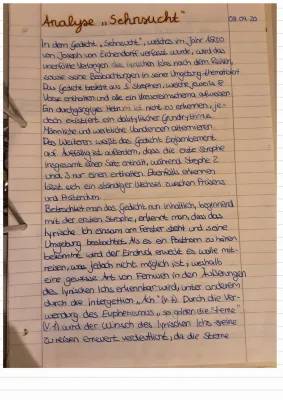 Analyse „Sehnsucht" 09.09.20
In dem Gedicht „Sehnsucht", welches im Jahr 1800
von Joseph von Eichendorff verfasst wurde, wird das
unerfüllte Verlangen des lyrischen Ichs nach dem Reisen,
sowie seine Beobachtungen in seiner Umgebung thematisiert.
Das Gedicht besteht aus 3 Strophen, welche jeweils 8
Verse enthalten und alle ein Kreuzreimschema aufweisen.
Ein durchgängiges Metrum ist nicht zu erkennen, je-
doch existiert ein daktylischer Grundrythmus.
Männliche und weibliche Kardenzen alternieren.
Des Weiteren weißt das Gedicht Enjambement
auf. Auffällig ist außerdem, dass die erste Strophe
insgesamt Sätze enthält, während Strophe 2
und 3 nur einen enthalten. Ebenfalls erkennen
lässt sich ein ständiger Wechsel zwischen Präsens
und Präteritum.
Betrachtet man das Gedicht nun inhaltlich, beginnend
mit der ersten Strophe, erkennt man, dass das
lyrische Ich einsam am Fenster steht und seine
Umgebung beobachtet. Als es ein Posthorn zu hören
bekommt wird der Eindruck erweckt es wolle mit-
reisen, was jedoch nicht möglich ist, weshalb
eine gewisse Art von Fernweh in den Äußerungen
des lyrischen Ichs erkennbar wird, unter anderem
durch die Interjektion „Ach" Durch die Ver-
wendung des Euphemismus „so golden die Sterne"
(V.1) wird der Wunsch des lyrischen Ichs
zu reisen erneut verdeutlicht, da die Sterne